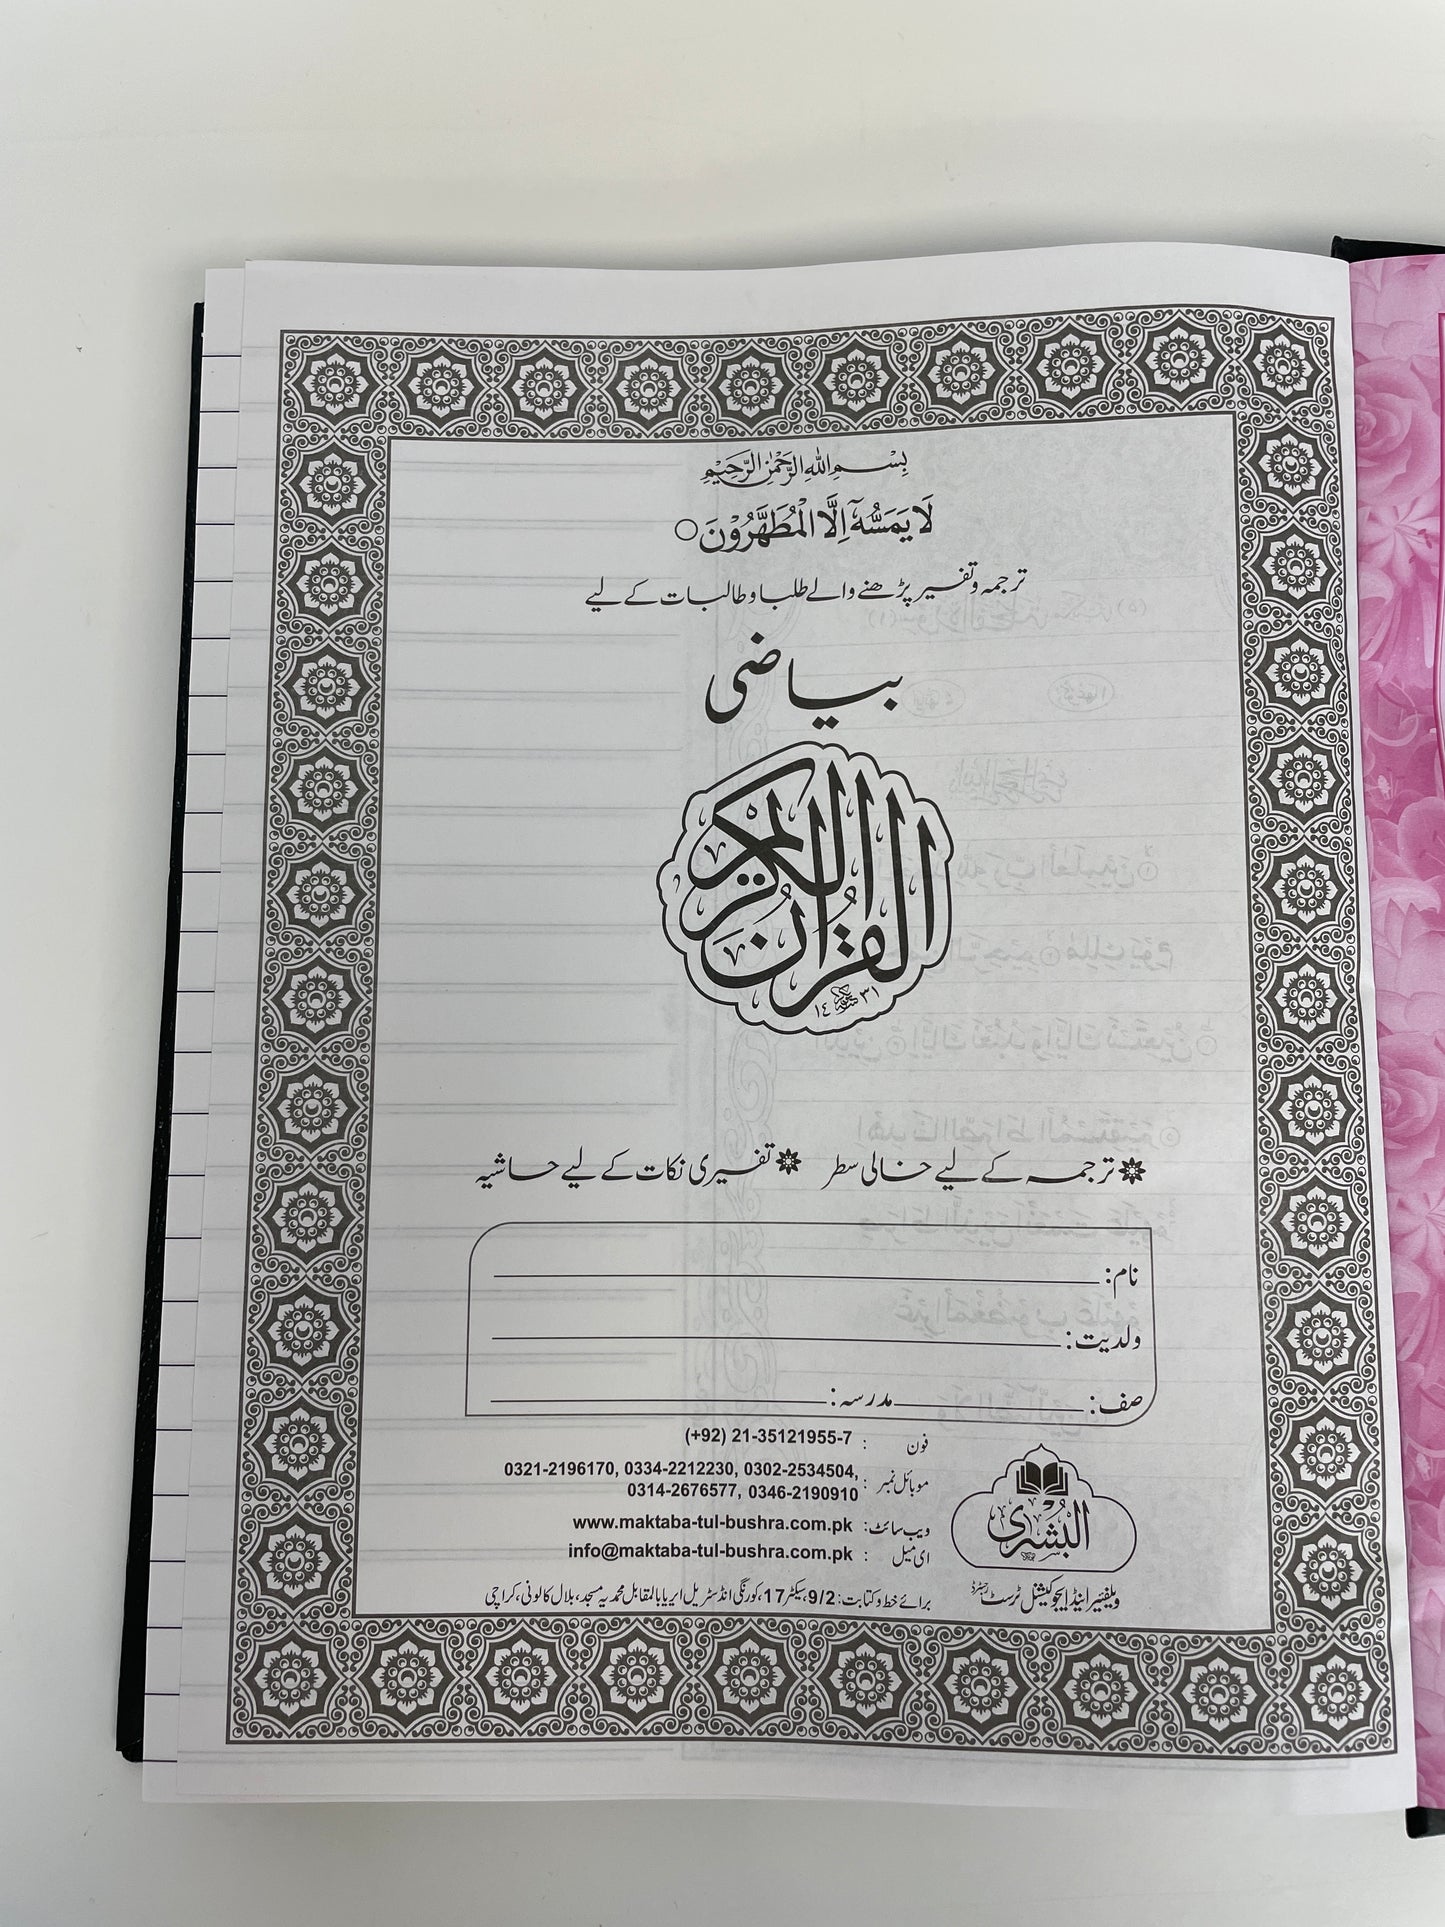 بِسْمِ اللهِ الرَّحْمٰنِ الرَّحِيْمِ
لَا يَمَسُّهٗۤ اِلَّا الْمُطَهَّرُوْنَ○
ترجمہ و تفسیر پڑھنے والے طلبا و طالبات کے لیے
بیاضی
القرآن الكريم
١٤٣١
ترجمہ کے لیے خالی سطر تفسیری نکات کے لیے حاشیہ
نام:
ولدیت:
صف: مدرسہ:
فون : (+92) 21-35121955-7
موبائل نمبر : 0321-2196170, 0334-2212230, 0302-2534504,
0314-2676577, 0346-2190910
ویب سائٹ: www.maktaba-tul-bushra.com.pk
ای میل : info@maktaba-tul-bushra.com.pk
برائے خط و کتابت: 9/2، سیکٹر 17، کورنگی انڈسٹریل ایریا بالمقابل محمدیہ مسجد، بلال کالونی، کراچی
البُشرى
ویلفیئر اینڈ ایجوکیشنل ٹرسٹ رجسٹرڈ